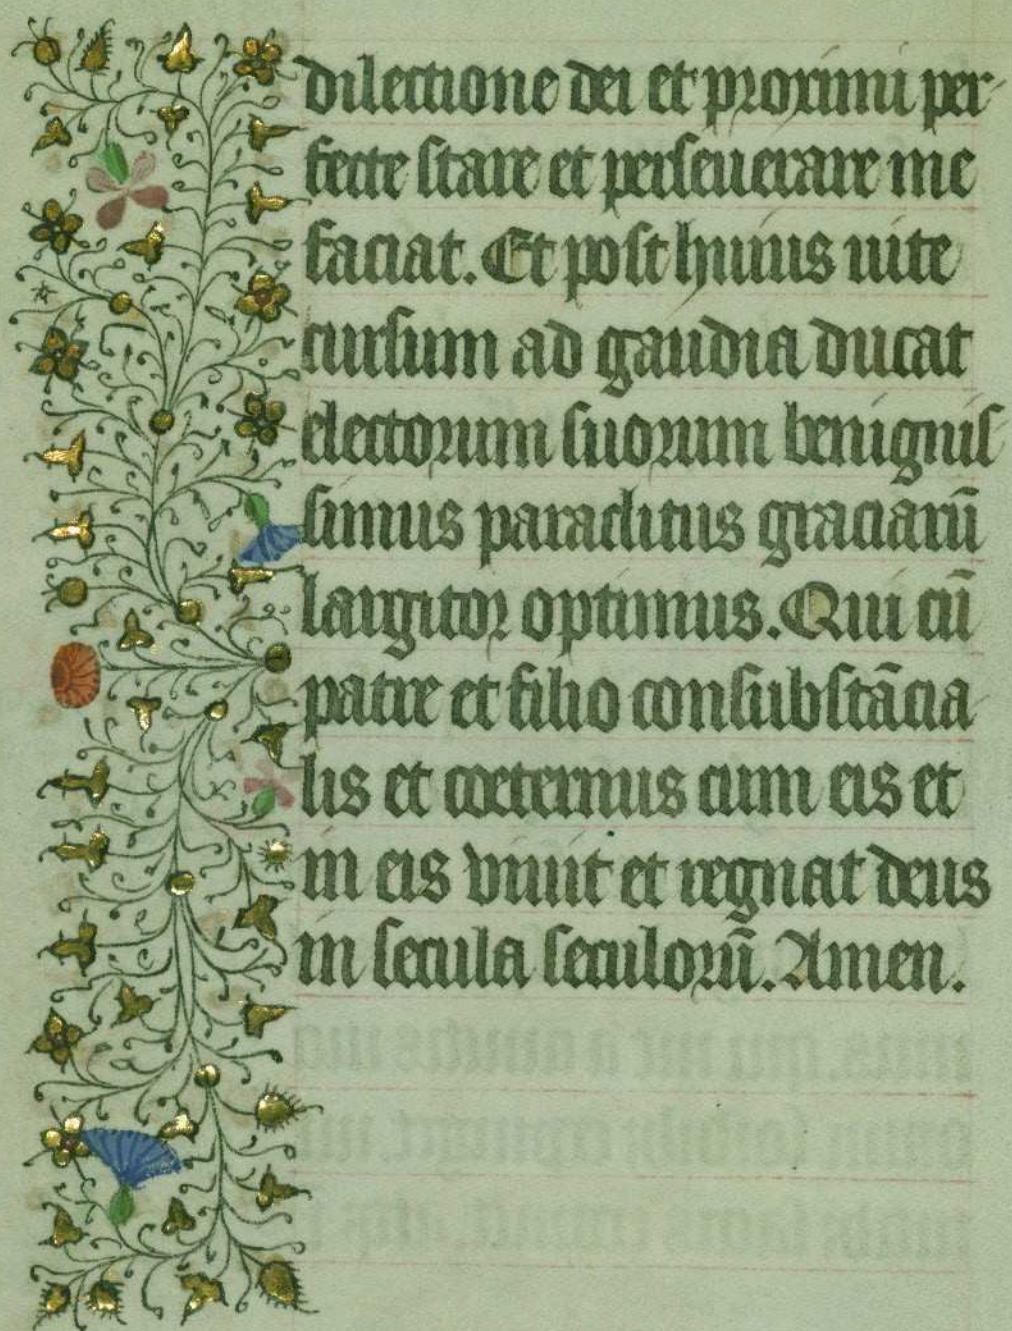 dilectione dei et proximi per
fecte stare et perseuerare me
faciat. Et post huius uite
cursum ad gaudia ducat
electorum suorum benignis
simus paraclitus graciarū
largitor optimus. Qui cū
patre et filio consubstācia
lis et coeternus cum eis et
in eis viuit et regnat deus
in secula seculorū. Amen.